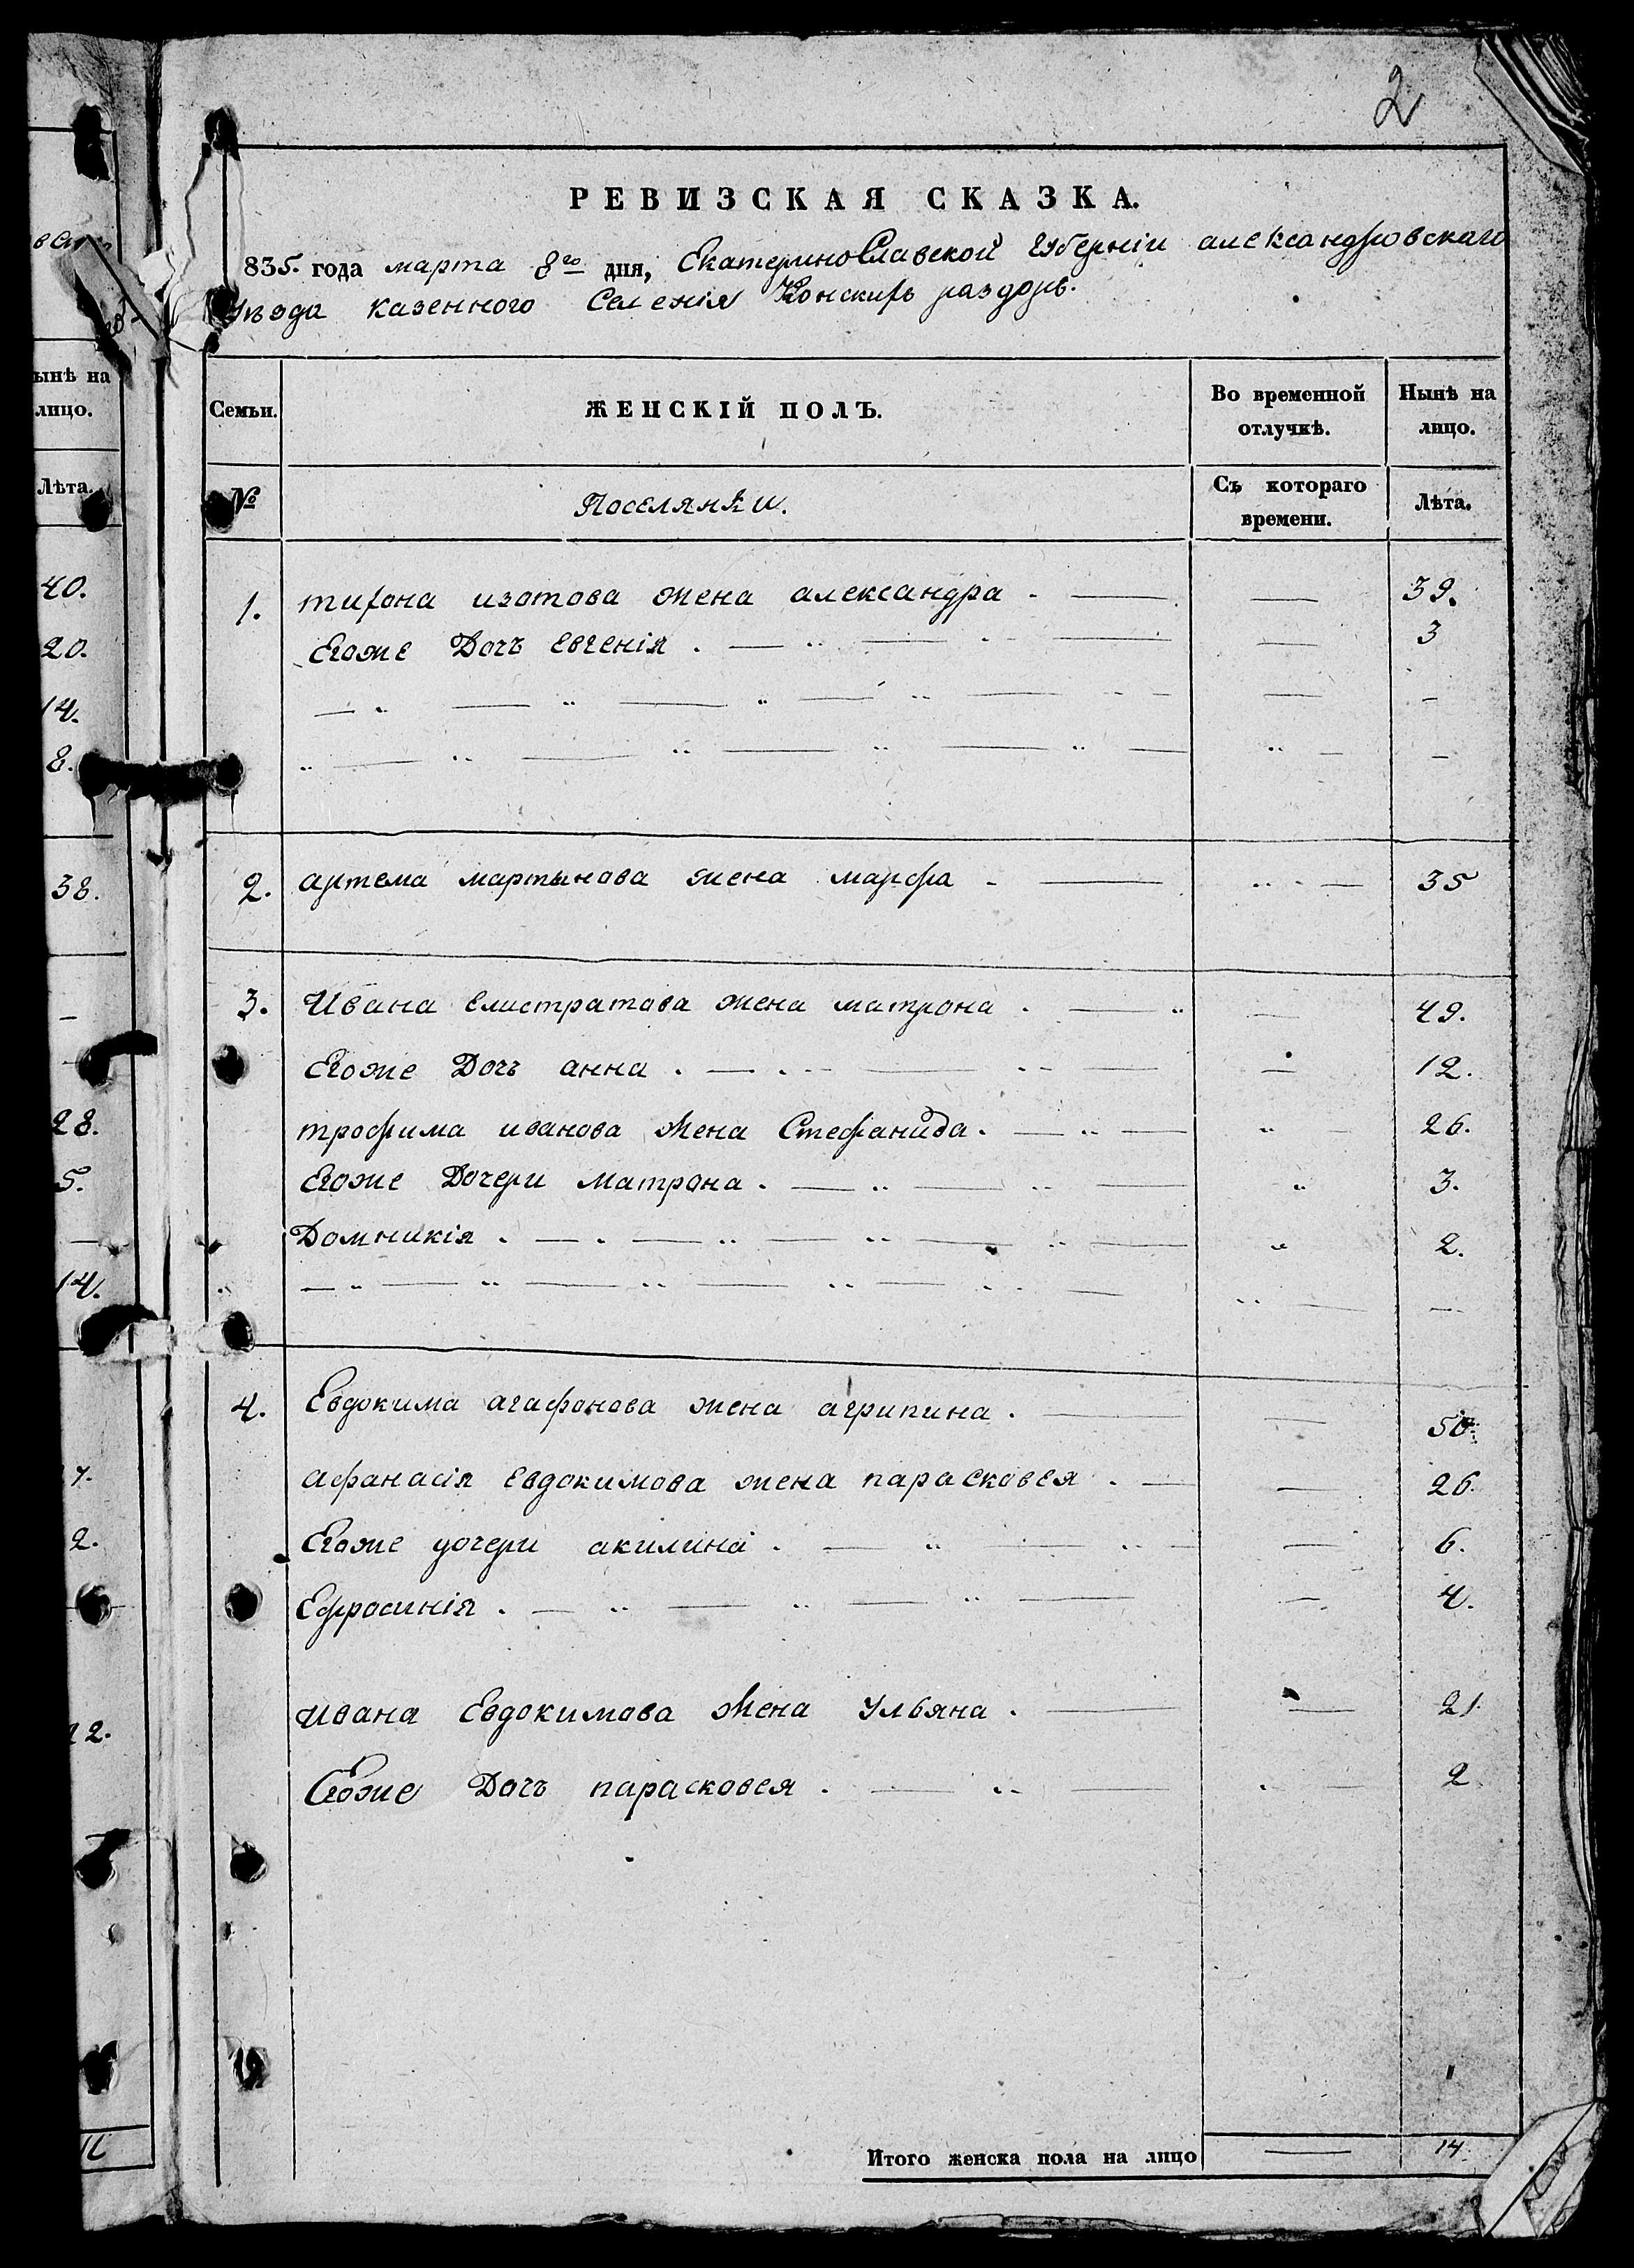 2
РЕВИЗСКАЯ СКАЗКА.
835. года марта 8го дня, Екатеринославской Губерніи александровскаго
уѣзда казенного Селенія Конскихъ раздоръ.
ынѣ на
лицо.
Лѣта.
40.
20.
14.
8.
38.
28.
5.
14.
2.
Семьи.
ЖЕНСКІЙ ПОЛЪ.
Во временной
отлучкѣ.
Нынѣ на
лицо.
№
Поселянки.
Съ котораго
времени.
Лѣта.
1. тихона изотова жена александра . — — 39.
Егоже Дочь евгенія . — — 3
2. артема мартынова жена марфа - — — 35
3. Ивана елистратова жена матрона . — — 49.
Егоже Дочь анна . — — 12.
трофима иванова жена Стефанида . — — 26.
Егоже Дочери матрона . — 3.
Домникія . — 2.
4. Евдокима агафонова жена агрипина . — — 50
афанасія евдокимова жена парасковея . — — 26.
Егоже дочери акилина . — — 6.
Ефросинія . — — 4.
ивана Евдокимова жена Ульяна . — — 21.
Егоже Дочь парасковея . — — 2
Итого женска пола на лицо — 14.